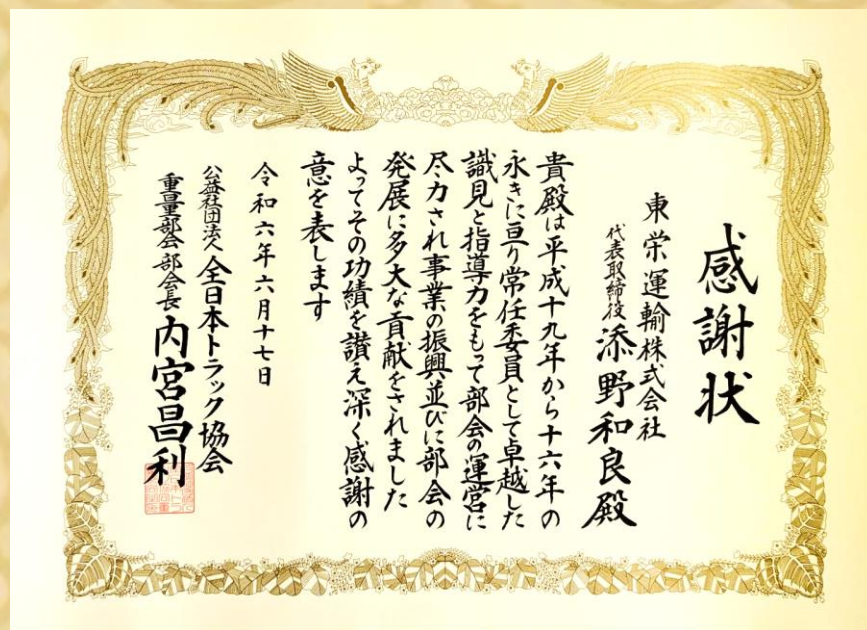 感謝状
東栄運輸株式会社
代表取締役 添野和良殿
貴殿は平成十九年から十六年の
永きに亘り常任委員として卓越した
識見と指導力をもって部会の運営に
尽力され事業の振興並びに部会の
発展に多大な貢献をされました
よってその功績を讃え深く感謝の
意を表します
令和六年六月十七日
公益社団法人 全日本トラック協会
重量部会部会長 内宮昌利